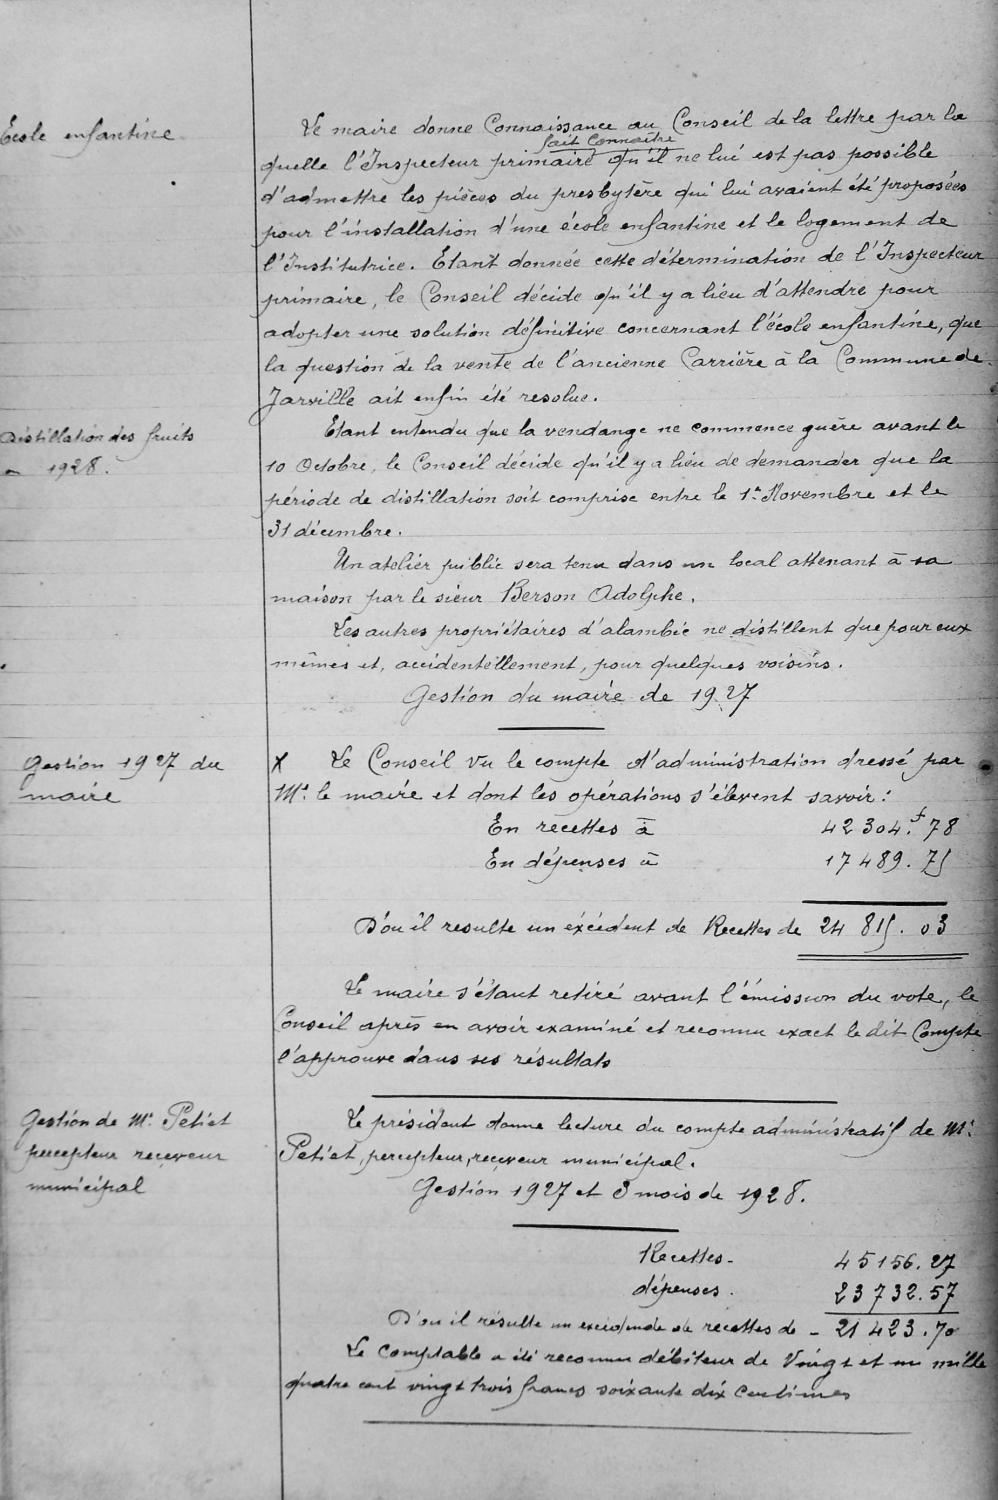 École enfantine
Le maire donne Connaissance au Conseil de la lettre par la
fait Connaître
quelle l'Inspecteur primaire qu'il ne lui est pas possible
d'admettre les pièces du presbytère qui lui avaient été proposées
pour l'installation d'une école enfantine et le logement de
l'Institutrice. Etant donnée cette détermination de l'Inspecteur
primaire, le Conseil décide qu'il y a lieu d'attendre pour
adopter une solution définitive concernant l'école enfantine, que
la question de la vente de l'ancienne Carrière à la Commune de
Jarville ait enfin été resolue.
Distillation des fruits
1928.
Etant entendu que la vendange ne commence guère avant le
10 Octobre, le Conseil décide qu'il y a lieu de demander que la
période de distillation soit comprise entre le 1er Novembre et le
31 décembre.
Un atelier public sera tenu dans un local attenant à sa
maison par le sieur Berson Adolphe.
Les autres propriétaires d'alambic ne distillent que pour eux
mêmes et, accidentellement, pour quelques voisins.
Gestion du maire de 1927
Gestion 1927 du
maire
x Le Conseil vu le compte d'administration dressé par
Mr. le maire et dont les opérations s'élèvent savoir :
En recettes à 42304.f 78
En dépenses à 17489. 75
D'où il resulte un excédent de Recettes de 24 815. 03
Le maire s'étant retiré avant l'émission du vote, le
Conseil après en avoir examiné et reconnu exact le dit Compte
l'approuve dans ses résultats
Gestion de Mr. Petiet
percepteur receveur
municipal
Le président donne lecture du compte administratif de Mr.
Petiet, percepteur, receveur municipal.
Gestion 1927 et 3 mois de 1928.
Recettes - 45156.27
dépenses. 23732.57
D'où il résulte un excédende de recettes de - 21 423.70
Le comptable a été reconnu débiteur de Vingt et un mille
quatre cent vingt trois francs soixante dix centimes